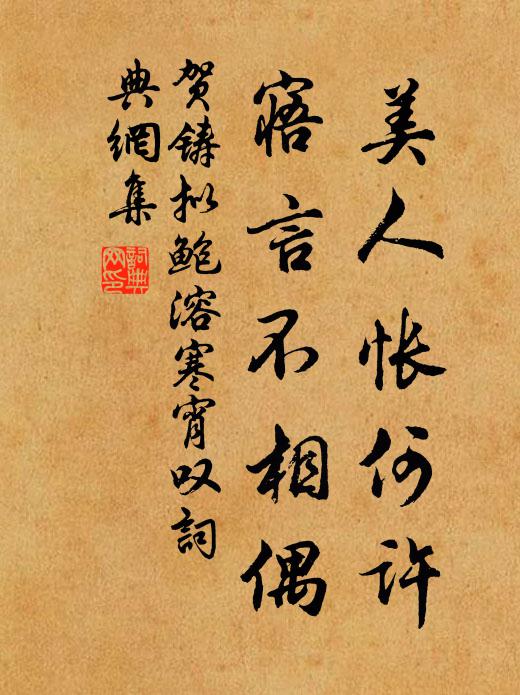 美人怅何许
寤言不相偶
贺铸拟鲍溶寒宵叹詞
典網集
詞典
网印